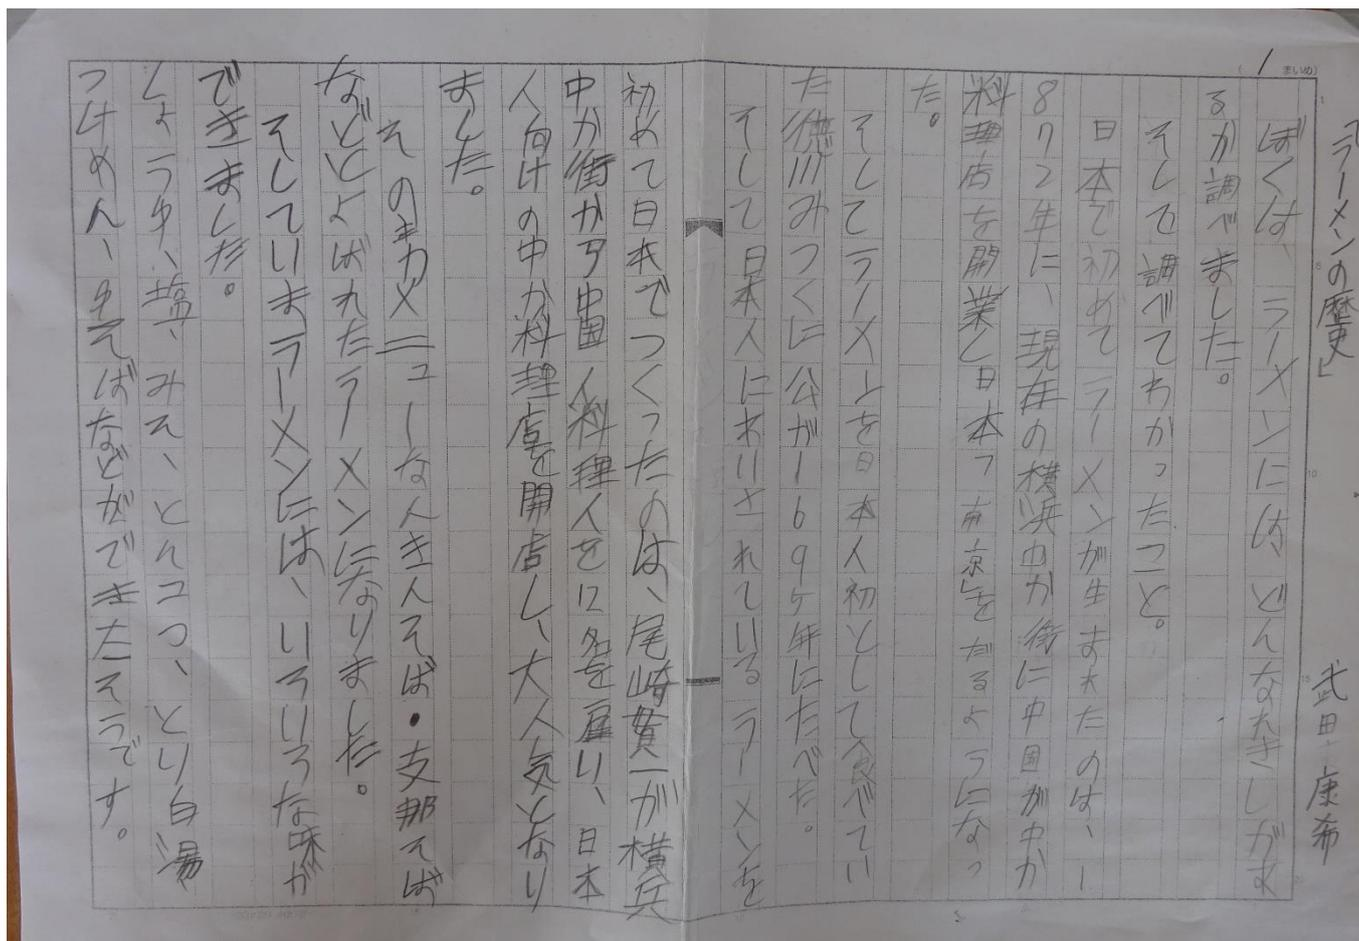 1 まいめ
「ラーメンの歴史」
武田 康希
ぼくは、ラーメンにはどんなれきしがあ
るか調べました。
そして調べてわかったこと。
日本で初めてラーメンが生まれたのは、1
872年に、現在の横浜中か街に中国が中か
料理店を開業し日本で「南京」をだるようになっ
た。
そしてラーメンを日本人初として食べてい
た徳川みつくに公が1697年にたべた。
そして日本人にあいされているラーメンを
初めて日本でつくったのは、尾崎貫一が横兵
中か街から中国人料理人を12名を雇い、日本
人向けの中か料理店を開店し、大人気となり
ました。
そのときメニューな人き人そば・支那そば
などとよばれたラーメンになりました。
そしていまラーメンには、いろいろな味が
できました。
しょうゆ、塩、みそ、とんコつ、とり白湯
つけめん、まぜそばなどができたそうです。